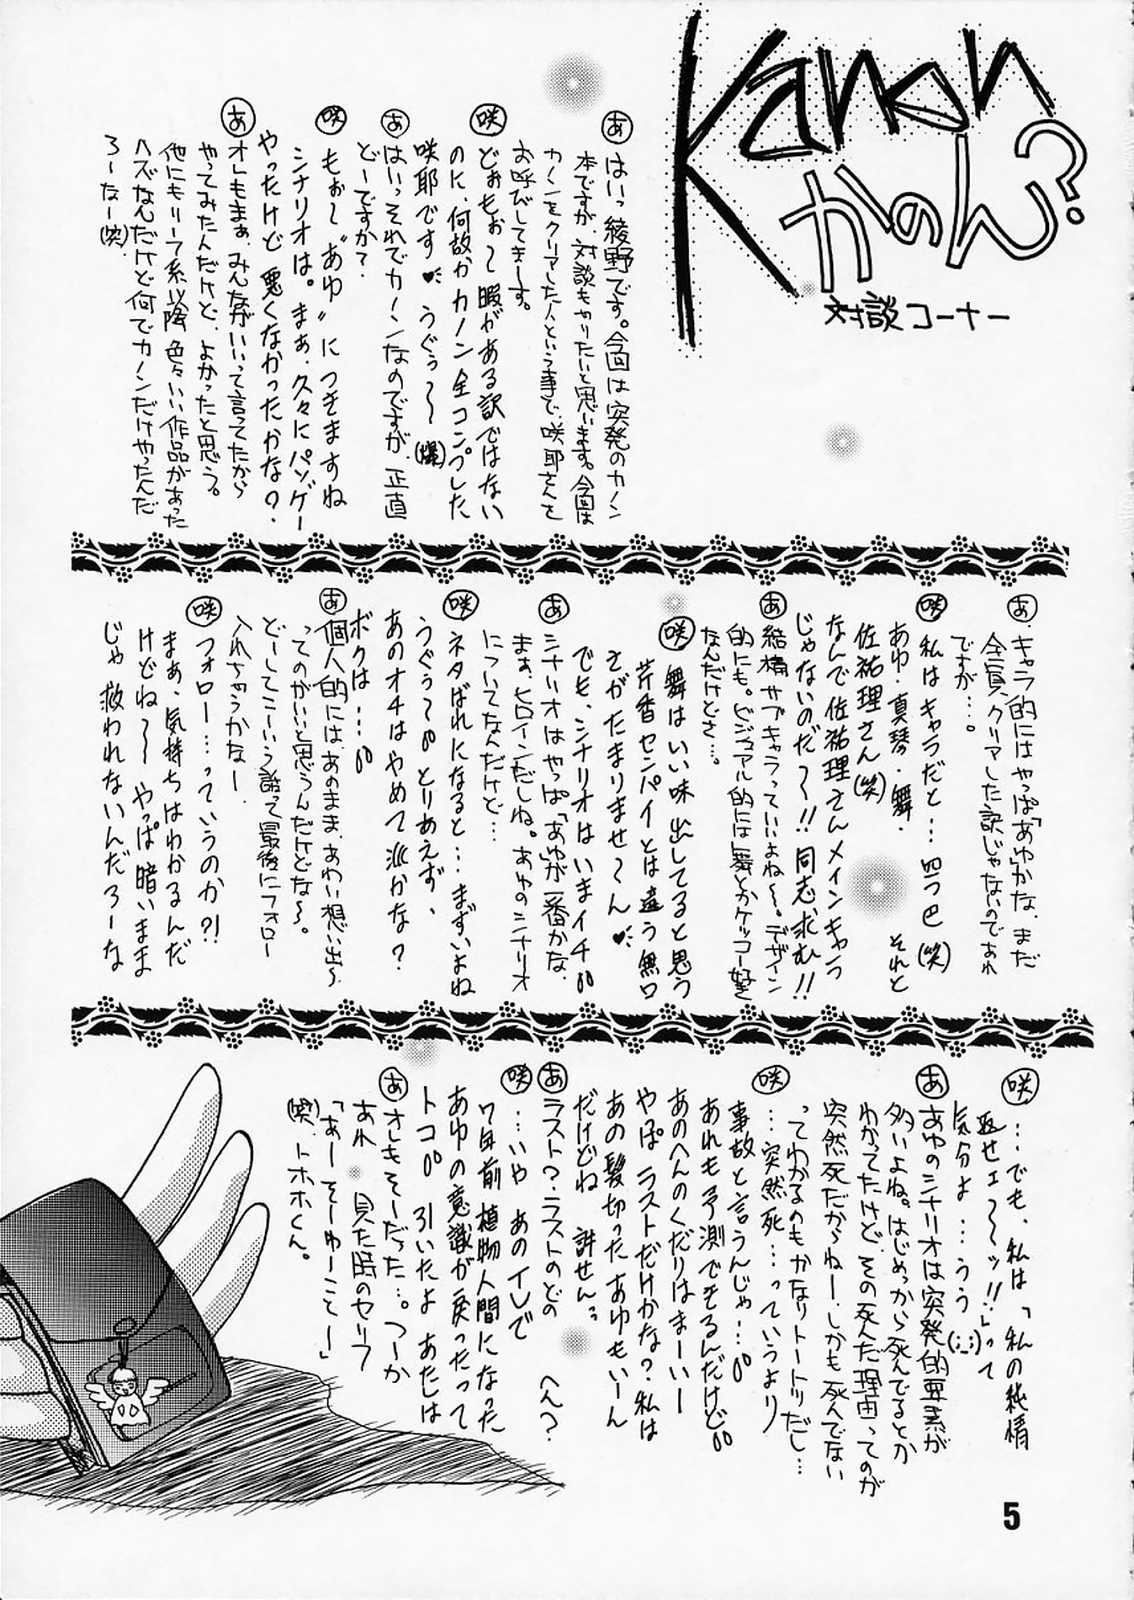 Kanon
かのん?
対談コーナー
あ はいっ綾野です。今回は突発のカノン
本ですが、対談もやりたいと思います。今回は
カノンをクリアした人という事で、咲耶さんを
お呼びしてまーす。
咲 どぉもぉ〜暇がある訳ではない
のに、何故かカノン全コンプした
咲耶です♥うぐぅ〜〜(爆)
あ はいっそれでカノンなのですが、正直
どーですか?
咲 もぉ〜"あゆ"につきますね
シナリオは。まぁ、久々にパソゲー
やったけど悪くなかったかな?
あ オレもまぁ、みんながいいって言ってたから
やってみたんだけど、よかったと思う。
他にもリーフ系以降色々いい作品があった
ハズなんだけど何でカノンだけやったんだ
ろーなー(笑)
あ キャラ的にはやっぱ「あゆ」かな、まだ
全員、クリアした訳じゃないのであれ
ですが…。
咲 私はキャラだと…四つ巴(笑)
あゆ・真琴・舞・それと
佐祐理さん(笑)
なんで佐祐理さんメインキャラ
じゃないのだ〜!!同志求む!!
あ 結構サブキャラっていいよね〜。デザイン
的にも。ビジュアル的には舞とかケッコー好き
なんだけどさ…。
咲 舞はいい味出してると思う
芹香センパイとは違う無口
さがたまりませ〜ん♥
でも、シナリオはいまイチ
あ シナリオはやっぱ「あゆ」が一番かな、
まぁ、ヒロインだしね。あゆのシナリオ
についてなんだけど…
咲 ネタばれになると…まずいよね
うぐぅ〜とりあえず、
あのオチはやめて欲しかな?
ボクは…
あ 個人的には、あのまま、あわい想い出〜、
ってのがいいと思うんだけどな〜。
どーしてこーいう話って最後にフォロー
入れちゃうかなー
咲 フォロー…っていうのか?!
まぁ、気持ちはわかるんだ
けどね〜〜やっぱ暗いまま
じゃ救われないんだろーな
咲 …でも、私は「私の純情
返せェ〜〜ッ!!」って
気分よ…うぅ(;_;)
あ あゆのシナリオは突発的要素が
多いよね。はじめっから死んでるとか
わかってたけど、その死んだ理由ってのが
突然死だからねー、しかも死んでない
ってわかるのもかなりトートツだし…
咲 …突然死…っていうより
事故と言うんじゃ…
あれも予測できるんだけど
あのへんのくだりはまーいー
やぱラストだけかな?私は
あの髪切ったあゆもいーん
だけどね 許せんっ
あ ラスト?ラストのどの へん?
咲 …いや あのイしで
7年前植物人間になった
あゆの意識が戻ったって
トコ 引いたよ あたしは
あ オレもそーだった…。つーか
あれ 見た時のセリフ
「あーそーゆーことー」
(笑)、トホホくん。
5